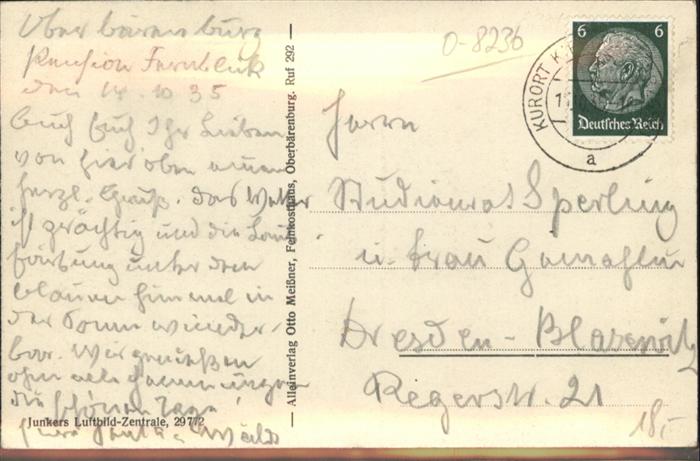 Oberbärenburg
Pension Fernblick
den 14.10.35
Auch Euch Ihr Lieben
von hier oben einen
herzl. Gruß. Das Wetter
ist prächtig und die Laub
färbung unter dem
blauen Himmel in
der Sonne wunder-
bar. Wir genießen
ohne alle
die schönen Tage!
Junkers Luftbild-Zentrale, 29772
— Alleinverlag Otto Meißner, Feinkosthaus, Oberbärenburg. Ruf 292 —
0-8236
6 6
Deutsches Reich
KURORT K
a
Herrn
Studienrat Sperling
u. Frau Gemahlin
Dresden-Blasewitz
Regerstr. 21
18,-